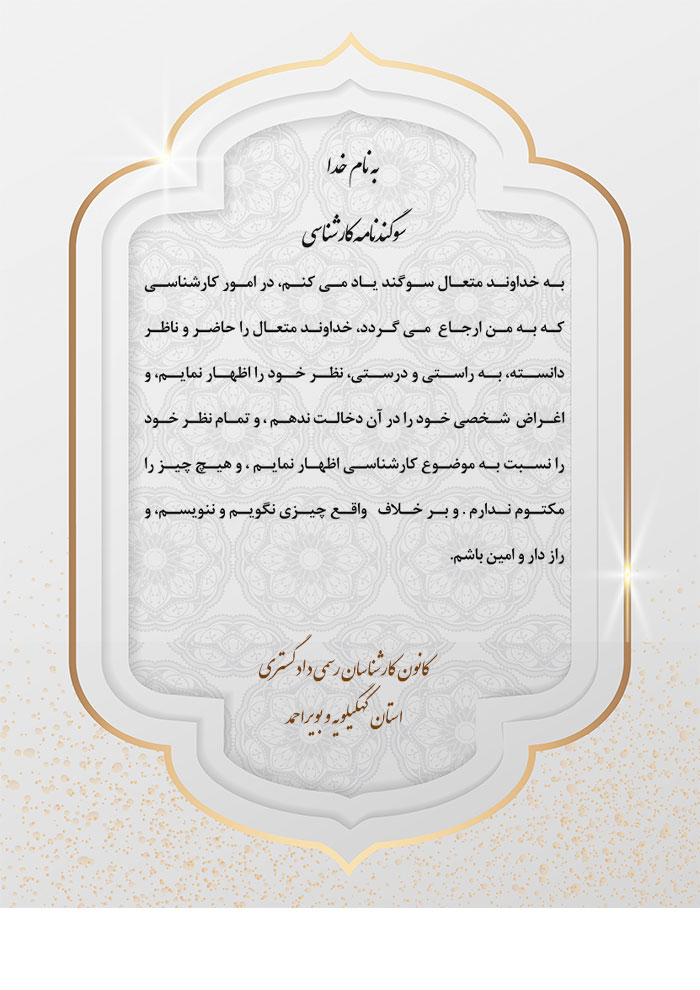 به نام خدا
سوگندنامه کارشناسی
به خداوند متعال سوگند یاد می کنم، در امور کارشناسی
که به من ارجاع می گردد، خداوند متعال را حاضر و ناظر
دانسته، به راستی و درستی، نظر خود را اظهار نمایم، و
اغراض شخصی خود را در آن دخالت ندهم ، و تمام نظر خود
را نسبت به موضوع کارشناسی اظهار نمایم ، و هیچ چیز را
مکتوم ندارم . و بر خلاف واقع چیزی نگویم و ننویسم، و
راز دار و امین باشم.
کانون کارشناسان رسمی دادگستری
استان کهگیلویه و بویراحمد